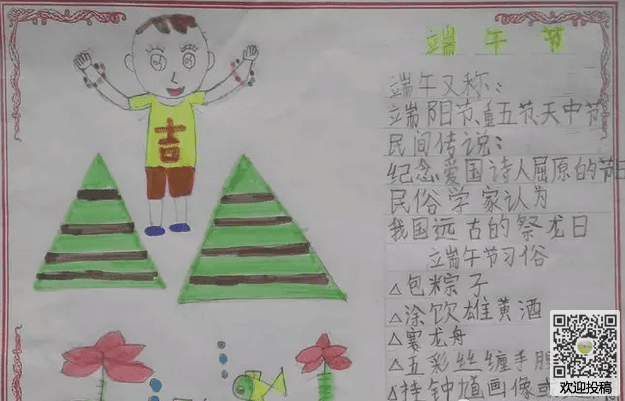 端午节
吉
端午又称:
端阳节,重五节,天中节
民间传说:
纪念爱国诗人屈原的节日
民俗学家认为
我国远古的祭龙日
端午节习俗
△包粽子
△涂饮雄黄酒
△赛龙舟
△五彩丝缠手腕
△挂钟馗画像或
欢迎投稿